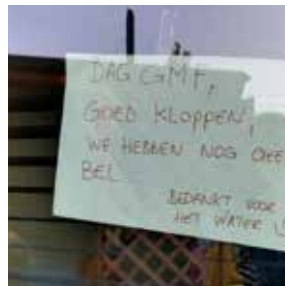 DAG GMF,
GOED KLOPPEN,
WE HEBBEN NOG
BEL
BEDANKT VOOR
HET WATER